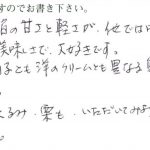 すのでお書き下さい。
の甘さと軽さが、他では
美味しさで、大好きです。
子とも洋のクリームとも異なる
くるみ、栗も、いただいてみ